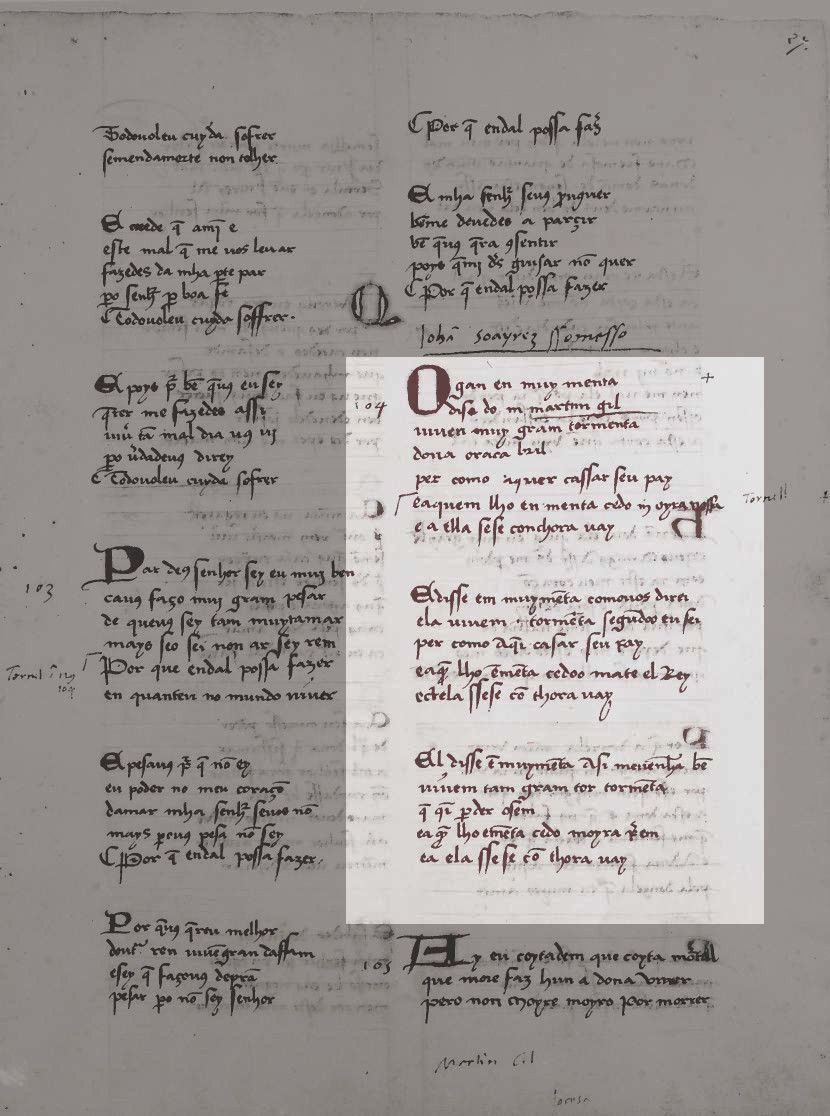 Todo voleu cuyda sofrer
semendamorte non tolher
E moede q̄ amī e
este mal q̄ me uos leuar
fazedes da mha ꝑte par
ꝑo senhr̄ ꝑ boa fe
Todouoleu cuyda soffrer.
E poys p̄ bē q̄ uꝯ eu sey
q̄rer me fazedes assi
uiuī tā mal dia uꝯ ui
ꝑo ūdadeuꝯ direy
Todouoleu cuyda sofrer
103
Par deꝯ senhor sey eu muj ben
cauꝯ faço muj gram pesar
de queuꝯ sey tam muytamar
mays seo sei non ar sey rem
Tornel
Por que endal possa fazer
en quanteu no mundo uiuer
E pesauꝯ p̄ q̄ nō ey
eu poder no meu coraçō
damar mha senhr̄ seuos nō
mays ꝑeuꝯ pesa nō sey
Por q̄ endal possa fazer.
Por q̄uꝯ q̄reu melhor
doutr̄ ren
esey q̄ façouꝯ
pesar ꝑo nō sey senhor
Por q̄ endal possa faz̄
E mha senhr̄ seuꝯ p̄uguer
bēme deuedes a parçir
bē q̄uꝯ q̄ra ꝯsentir
poys q̄mi ds̄ guisar nō quer
Por q̄ endal possa fazer
Johā Soayrez Somesso
104
Ogan en muy menta
disse do m martim gil
uiuen muy gram tormenta
dona oraca bril
per como quer cassar seu pay
Tornell
eaquem lho en menta cedo moyra
e a ella se se conchora uay
E disse em muymēta comouos direi
ela uiuem tormēta segūdo eu sei
per como casar seu pay
eaq̄ lho ēmēta cedoo mate el Rey
ectela sse se cō thora uay
El disse ē muymēta asi meuenha bē
uiuem tam gram tor tormēta
q̄ q̄ ꝑder osem
ea q̄ lho emēta cedo moyra
ea ela sse se cō thora uay
105
Ey eu coytadem que coyta mortal
que moie faz hun a dona
pero non moyre moyro por morrer
Martin Gil